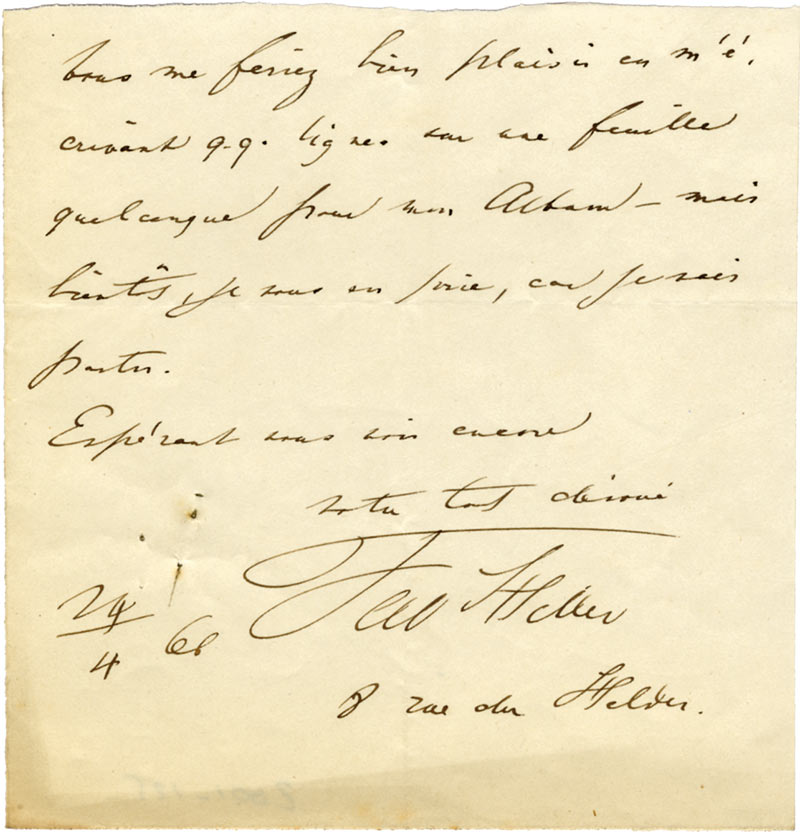 Vous me feriez bien plaisir en m'é-
crivant q.q. lignes sur une feuille
quelconque pour mon Album – mais
bientôt, je vous en prie, car je vais
partir.
Espérant vous voir encore
votre tout dévoué
Heller
24/4 66
8 rue du Helder.